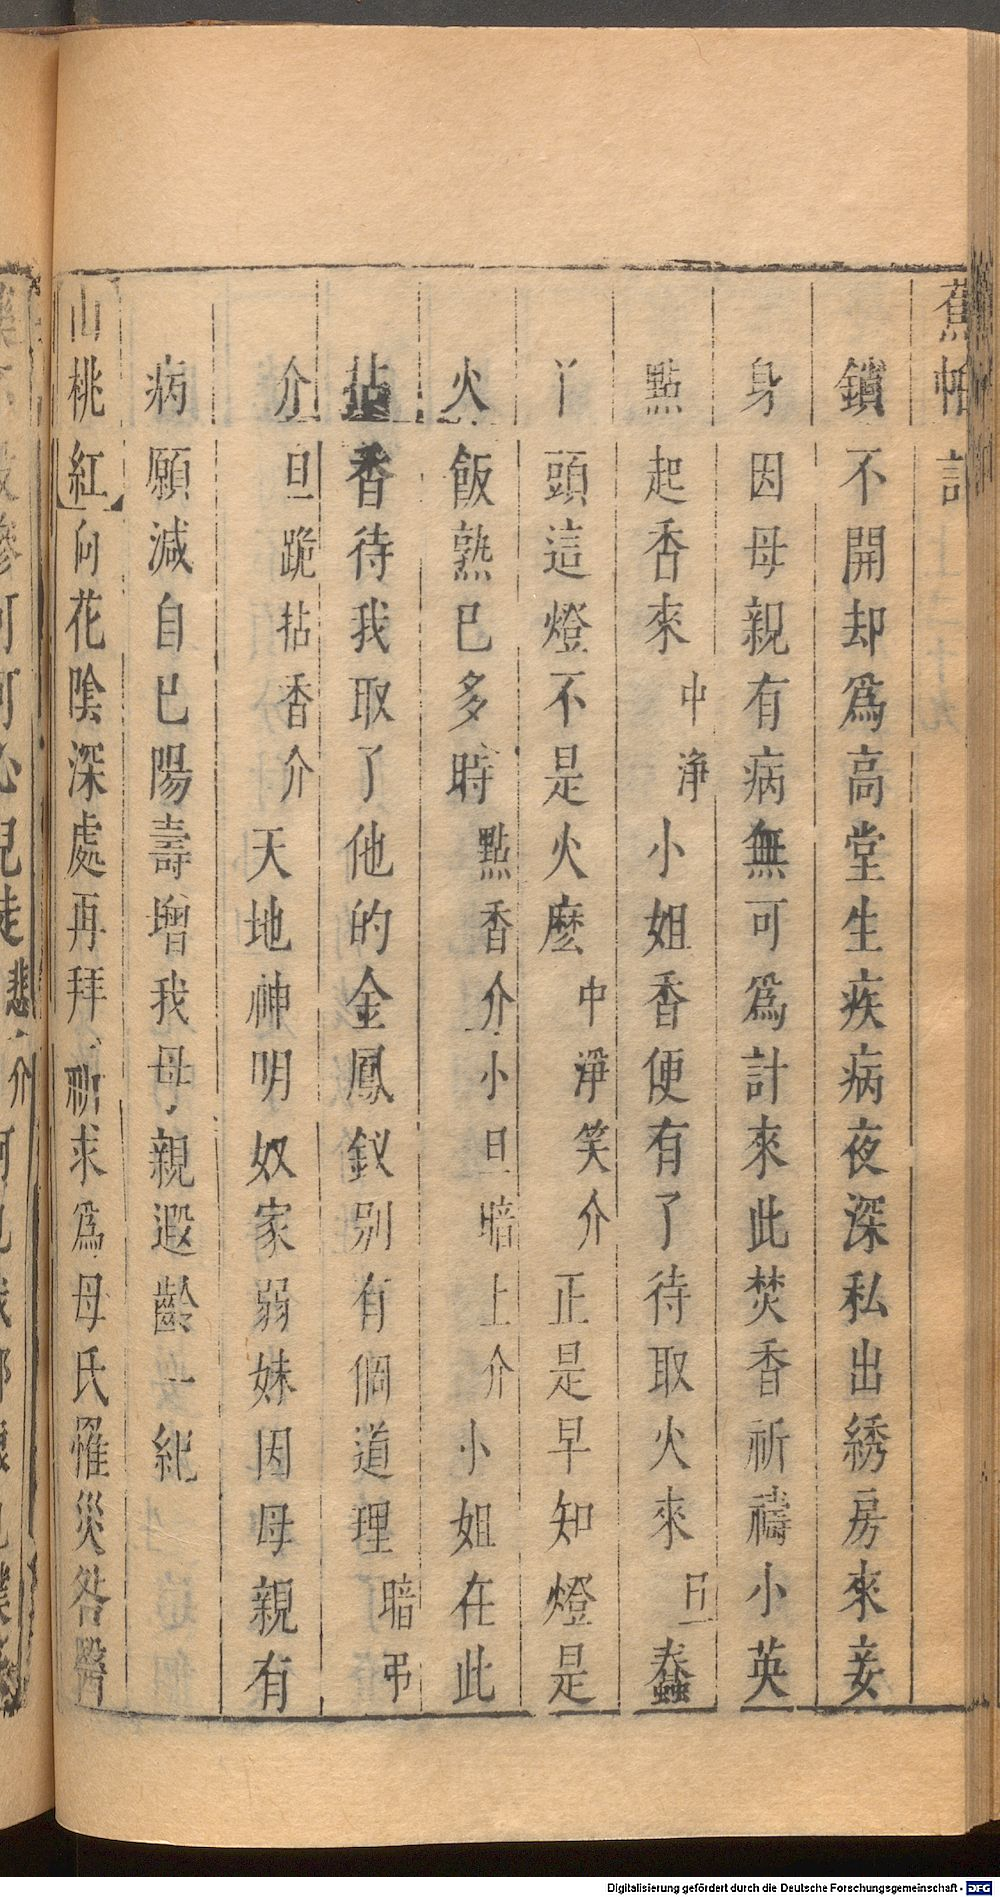 蕉帕記
鎖不開却爲高堂生疾病夜深私出綉房來妾
身因母親有病無可爲計來此焚香祈禱小英
點起香來中淨小姐香便有了待取火來旦蠢
丫頭這燈不是火麽中淨笑介正是早知燈是
火飯熟巳多時點香介小旦暗上介小姐在此
拈香待我取了他的金鳳釵别有個道理暗弔
介旦跪拈香介天地神明奴家弱妹因母親有
病願減自巳陽壽增我母親遐齡一紀
山桃紅向花陰深處再拜祈求爲母氏罹災咎
Digitalisierung gefördert durch die Deutsche Forschungsgemeinschaft - DFG